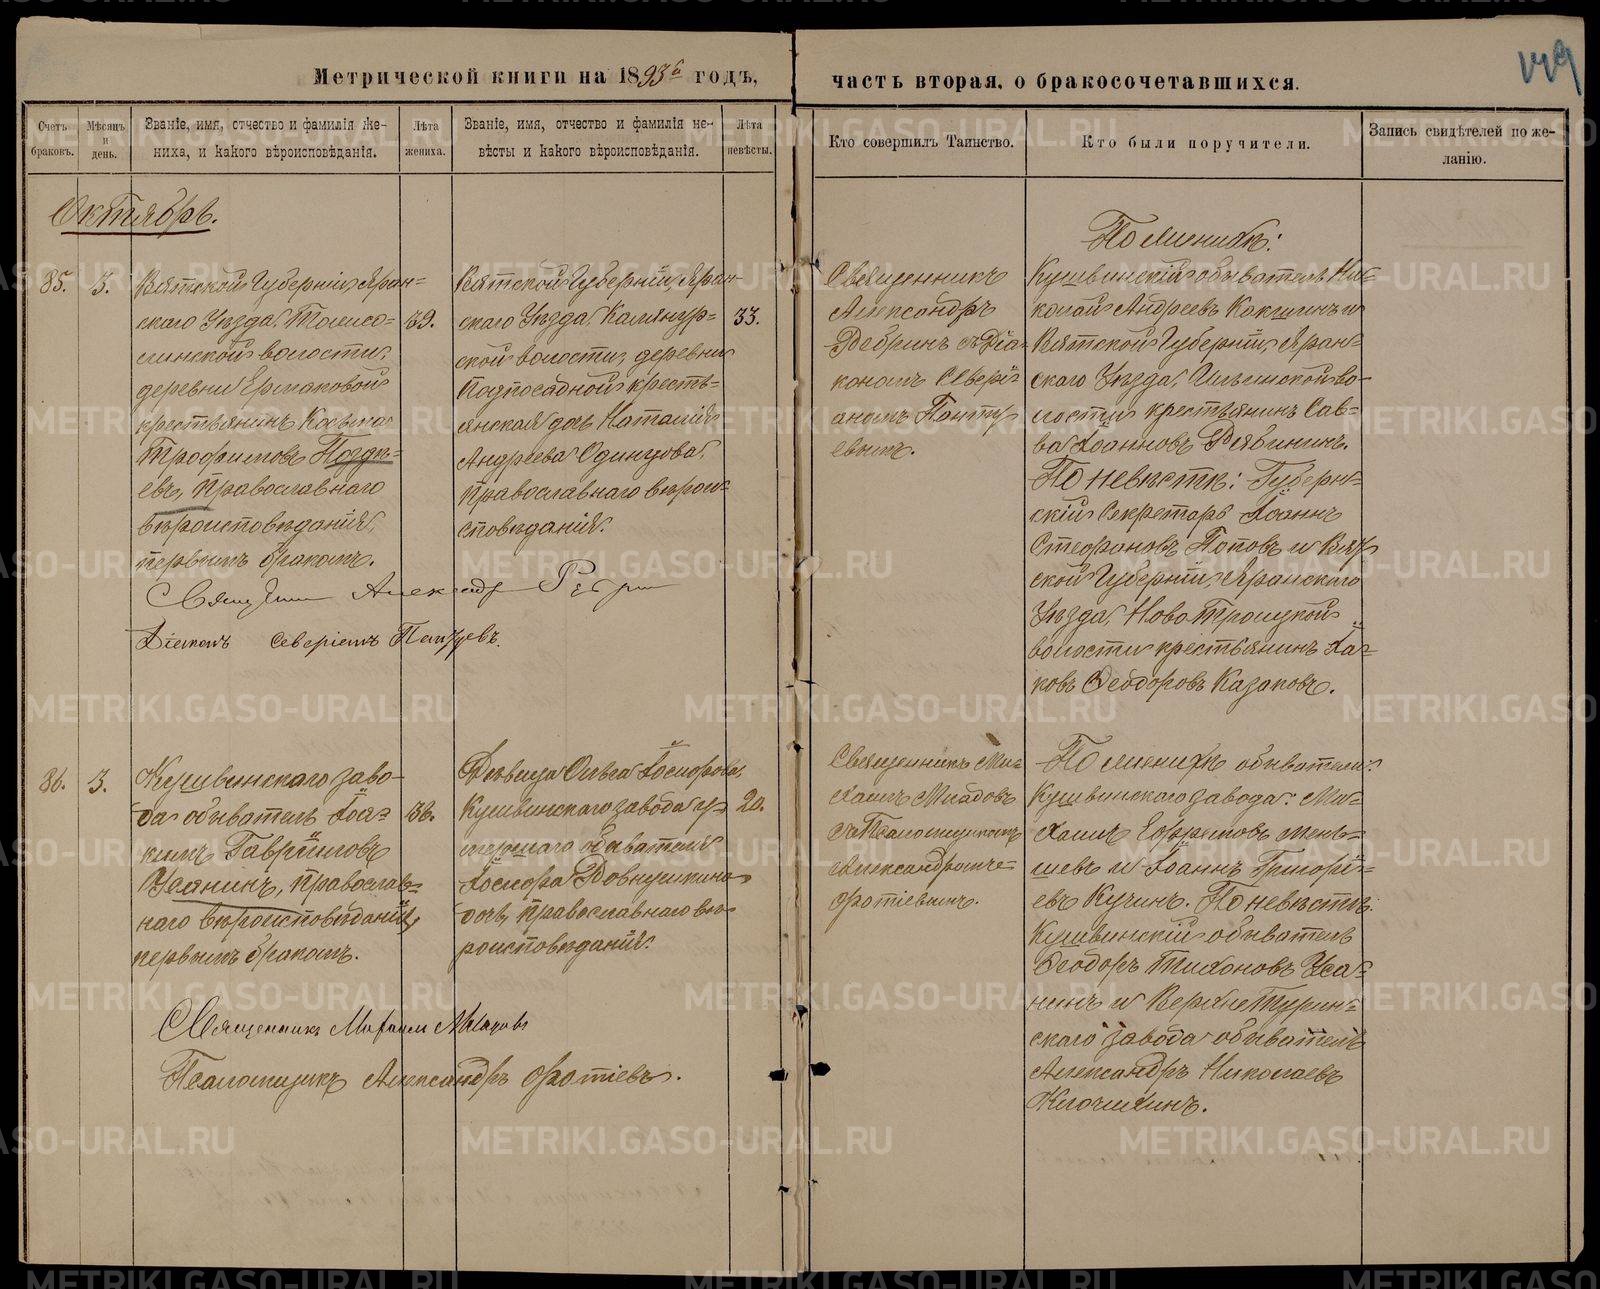 Метрической книги на 1893й годъ,
часть вторая, о бракосочетавшихся.
149
Счетъ браковъ.
Мѣсяцъ и день.
Званіе, имя, отчество и фамилія же-
ниха, и какого вѣроисповѣданія.
Лѣта жениха.
Званіе, имя, отчество и фамилія не-
вѣсты и какого вѣроисповѣданія.
Лѣта невѣсты.
Кто совершилъ Таинство.
Кто были поручители.
Запись свидѣтелей по же-
ланію.
Октябрь.
85.
3.
Вятской Губерніи, Яран-
скаго Уѣзда,
линской волости,
деревни Ермаковой
крестьянинъ Козьма
Трофимовъ Поздѣ-
евъ, православнаго
вѣроисповѣданія,
первымъ бракомъ.
39.
Вятской Губерніи, Яран-
скаго Уѣзда,
ской волости, деревни
Подпосадной кресть-
янская дочь Наталія
Андреева Одинцова,
православнаго вѣрои-
сповѣданія.
33.
Священникъ
Александръ
Ребринъ съ Діа-
кономъ Севері-
аномъ
евымъ.
По женихѣ:
Кушвинскій обыватель Ни-
колай Андреевъ Кокшинъ и
Вятской Губерніи, Яран-
скаго Уѣзда, Ильинской во-
лости крестьянинъ Сав-
ва Іоанновъ Рябининъ.
По невѣстѣ: Губерн-
скій Секретарь Іоаннъ
Стефановъ Поповъ и Вят-
ской Губерніи, Яранскаго
Уѣзда, Ново Троицкой
волости крестьянинъ Іа-
ковъ Ѳеодоровъ Казаковъ.
Священникъ Александръ Ребринъ
Діаконъ Северіанъ
86.
3.
Кушвинскаго заво-
да обыватель Іоа-
кимъ Гавріиловъ
Усанинъ, православ-
наго вѣроисповѣданія,
первымъ бракомъ.
38.
Дѣвица Ольга Іосифова,
Кушвинскаго завода у-
мершаго обывателя
Іосифа Ровнушкина
дочь, православнаго вѣ-
роисповѣданія.
20.
Священникъ Ми-
хаилъ Младовъ
съ Псаломщикомъ
Александромъ
Фотіевымъ.
По женихѣ обыватели
Кушвинскаго завода: Ми-
хаилъ Ефремовъ Мень-
шевъ и Іоаннъ Григорі-
евъ Кучинъ. По невѣстѣ:
Кушвинскій обыватель
Ѳеодоръ Тихоновъ Уса-
нинъ и Верхне Турин-
скаго завода обыватель
Александръ Николаевъ
Клочихинъ.
Священникъ Михаилъ Младовъ
Псаломщикъ Александръ Фотіевъ.
METRIKI.GASO-URAL.RU